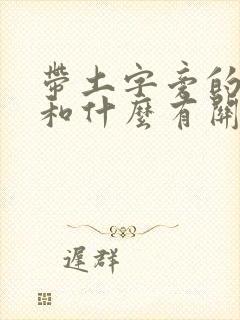 帶土字旁的
和什麼有關
遲群